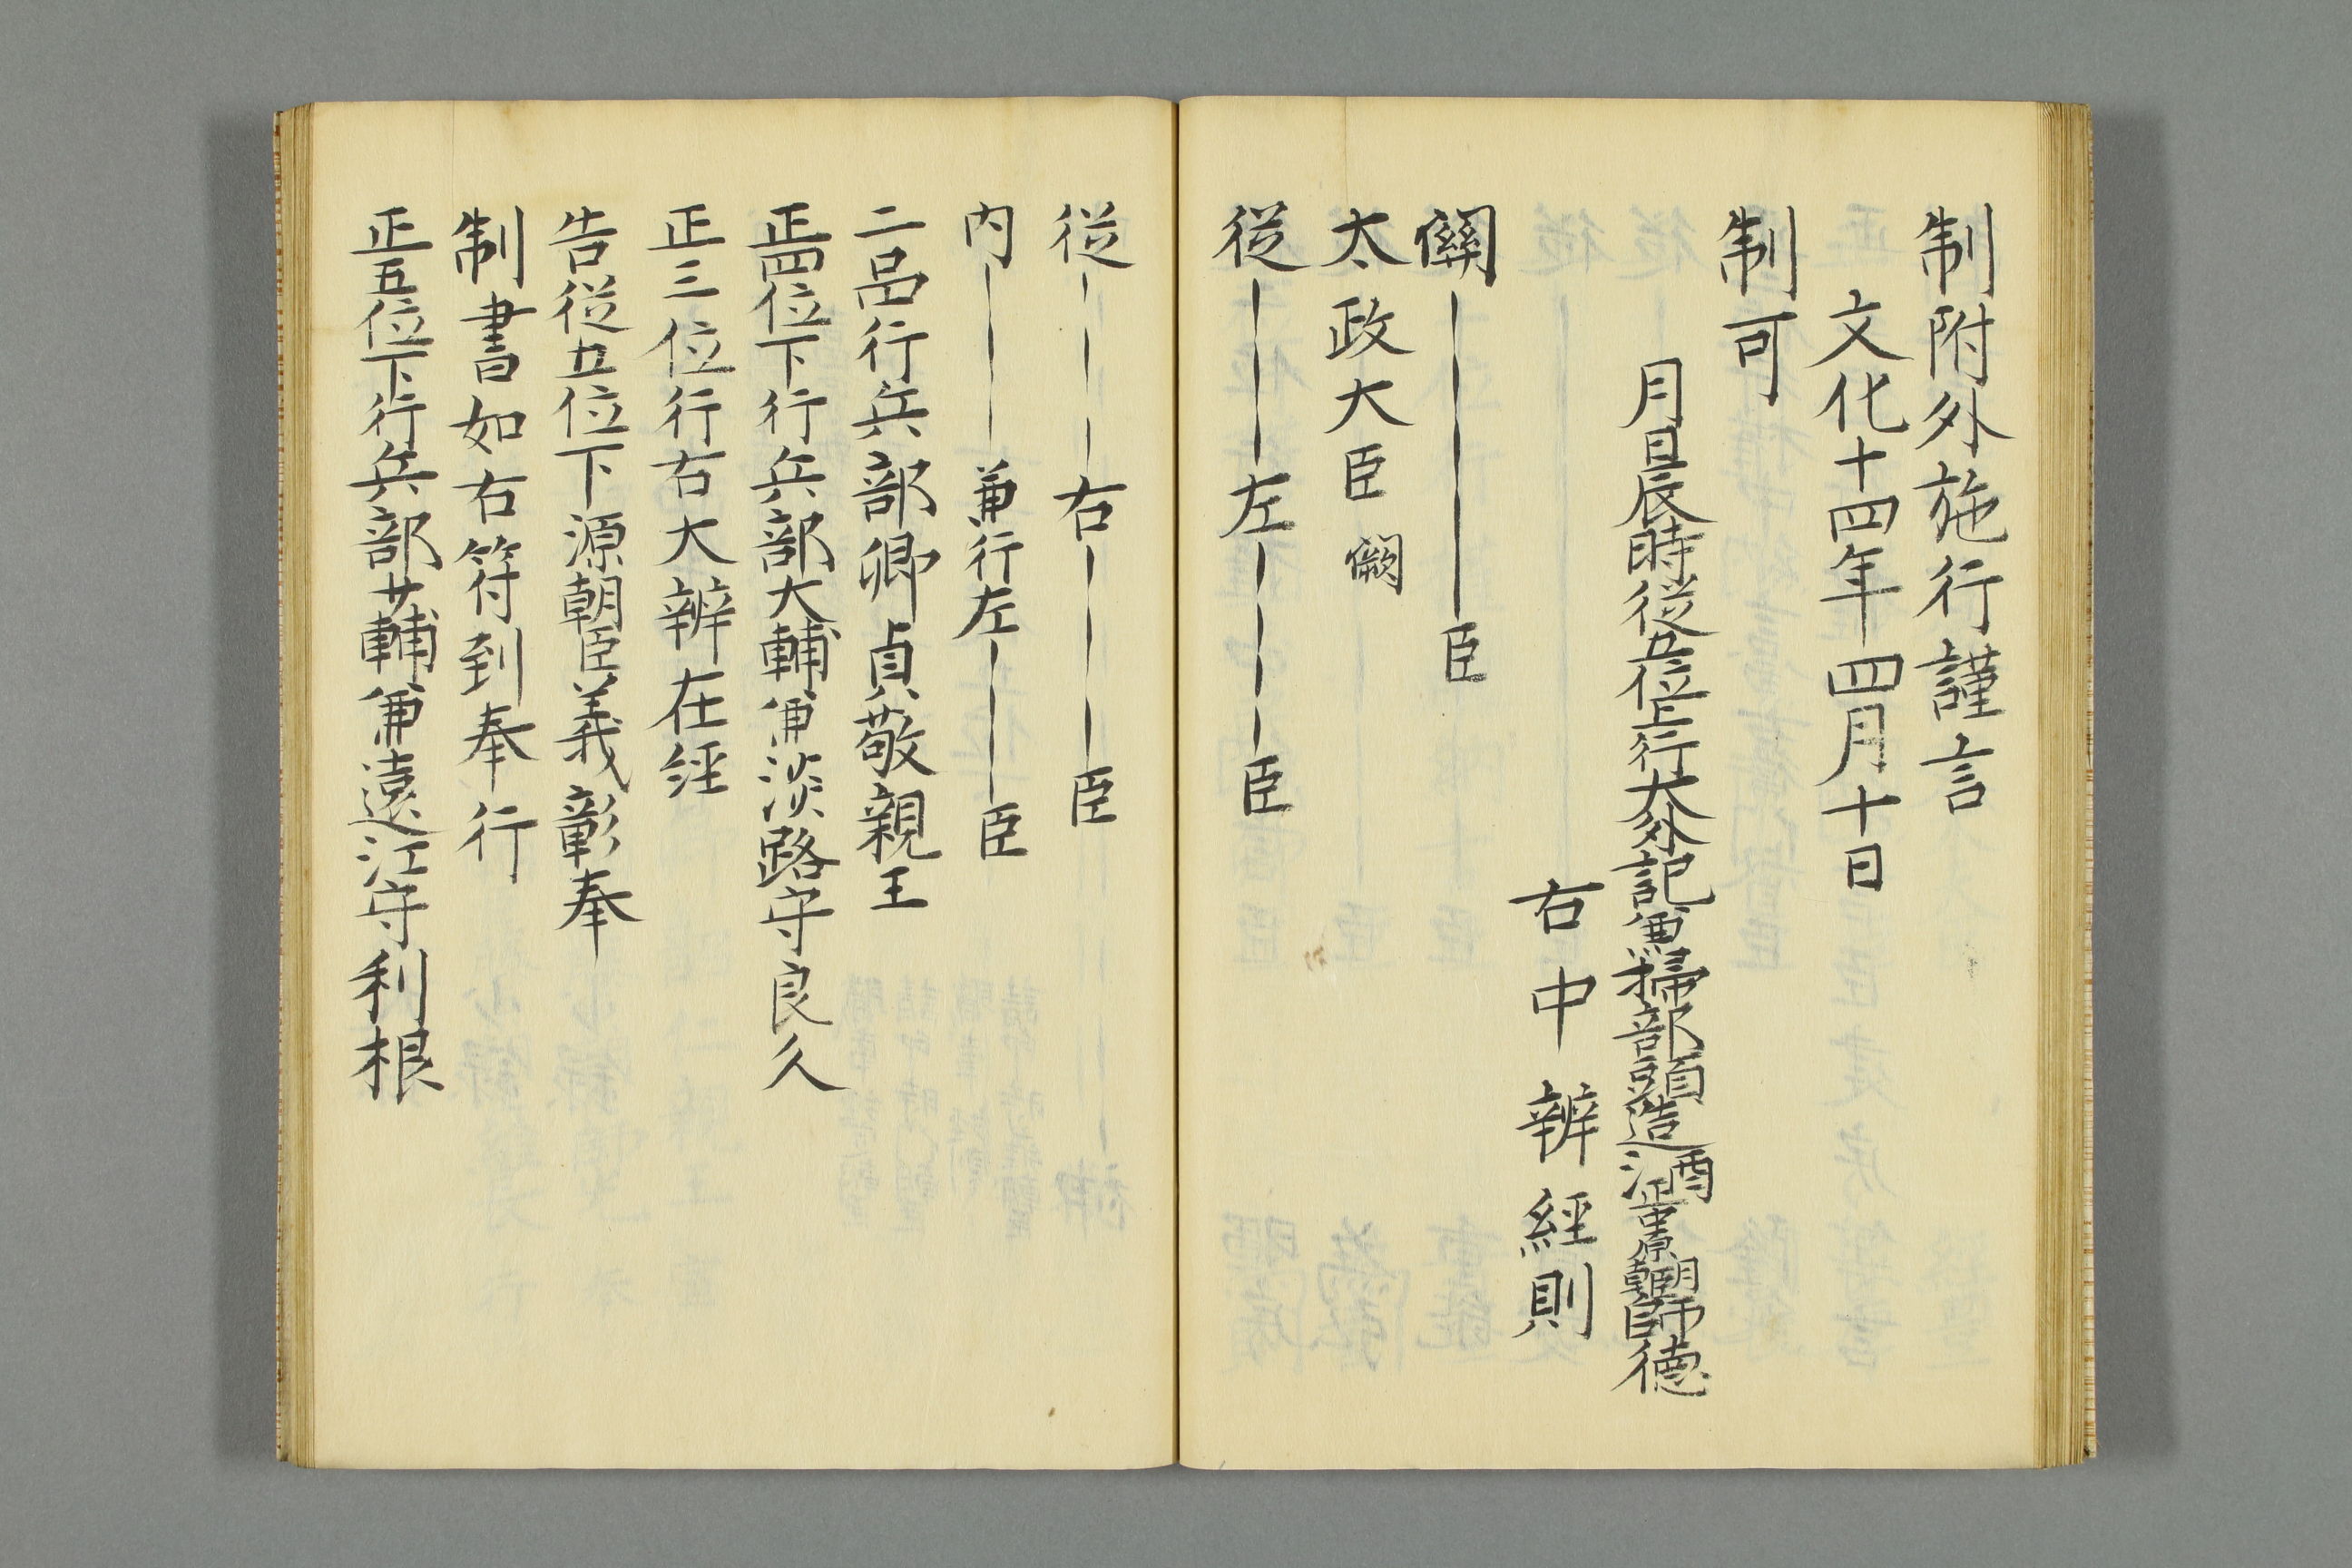 制附外施行謹言
文化十四年四月十日
制可
月日辰時従五位上行大外記兼掃部頭造酒正中原朝臣師徳
右中辨經則
關――――臣
太政大臣 闕
従―――左――――臣
従―――右―――臣
内―――兼行左―――臣
二品行兵部卿貞敬親王
正四位下行兵部大輔兼淡路守良久
正三位行右大辨在経
告従五位下源朝臣義彰奉
制書如右符到奉行
正五位下行兵部少輔兼遠江守利根